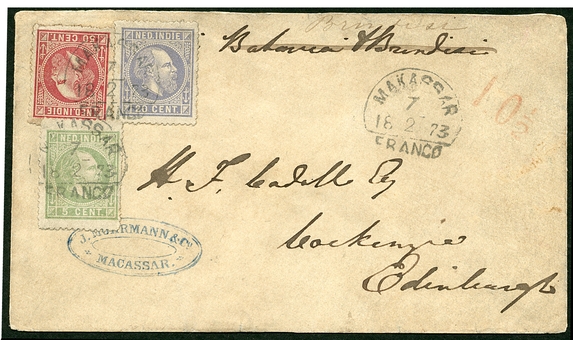 Brindisi
Batavia & Brindisi
50 CENT.
NED. INDIE
NED. INDIE
20 CENT.
MAKASSAR
7
18 2 73
FRANCO
MAKASSAR
7
18 2 73
FRANCO
MAKASSAR
7
18 2 73
FRANCO
NED. INDIE
5 CENT.
105
H. F. Cadell Esq
Cockenzie
Edinburgh
MACASSAR.